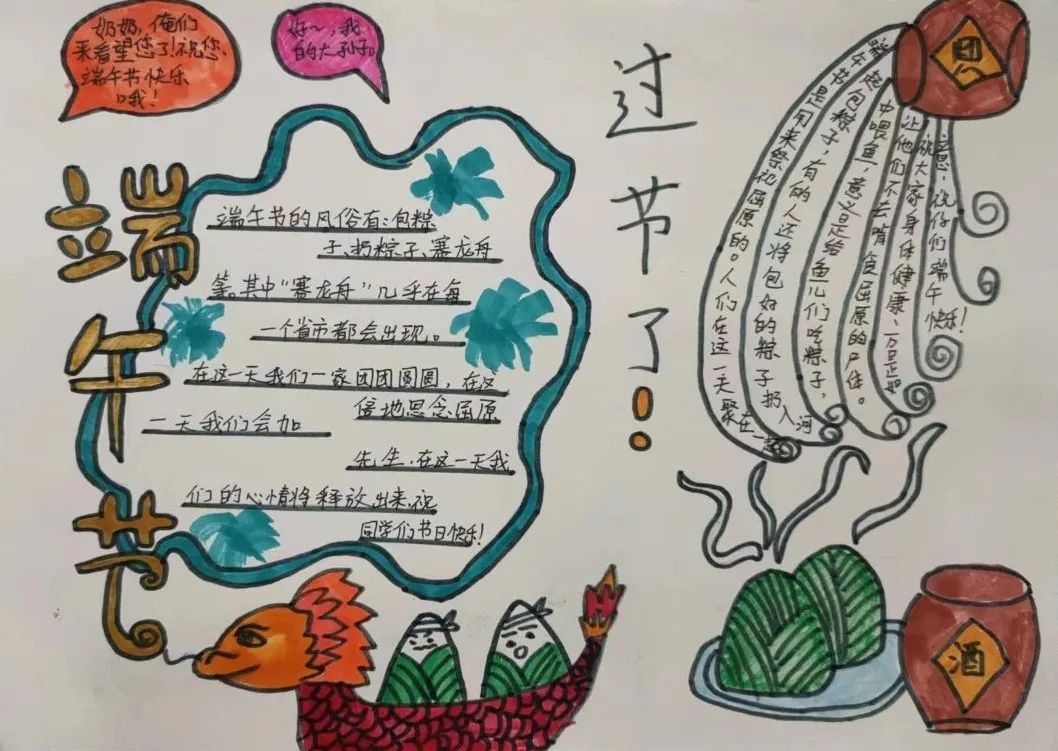 奶奶,俺们
来看望您了!祝您、
端午节快乐
哦!
好~,我
的大孙子。
端午节
过节了!
端午节的风俗有:包粽
子、扔粽子、赛龙舟
等。其中“赛龙舟”几乎在每
一个省市都会出现。
在这一天我们一家团团圆圆,在这
一天我们会加
倍地思念屈原
先生,在这一天我
们的心情将释放出来,祝
同学们节日快乐!
团
端午节是用来祭祀屈原的。人们在这一天聚在一起
包粽子,有的人还将包好的粽子扔入河
中喂鱼,意义是给鱼儿们吃粽子,
让他们不去啃食屈原的尸体。
祝大家身体健康、万事如
意,祝仔们端午快乐!
酒